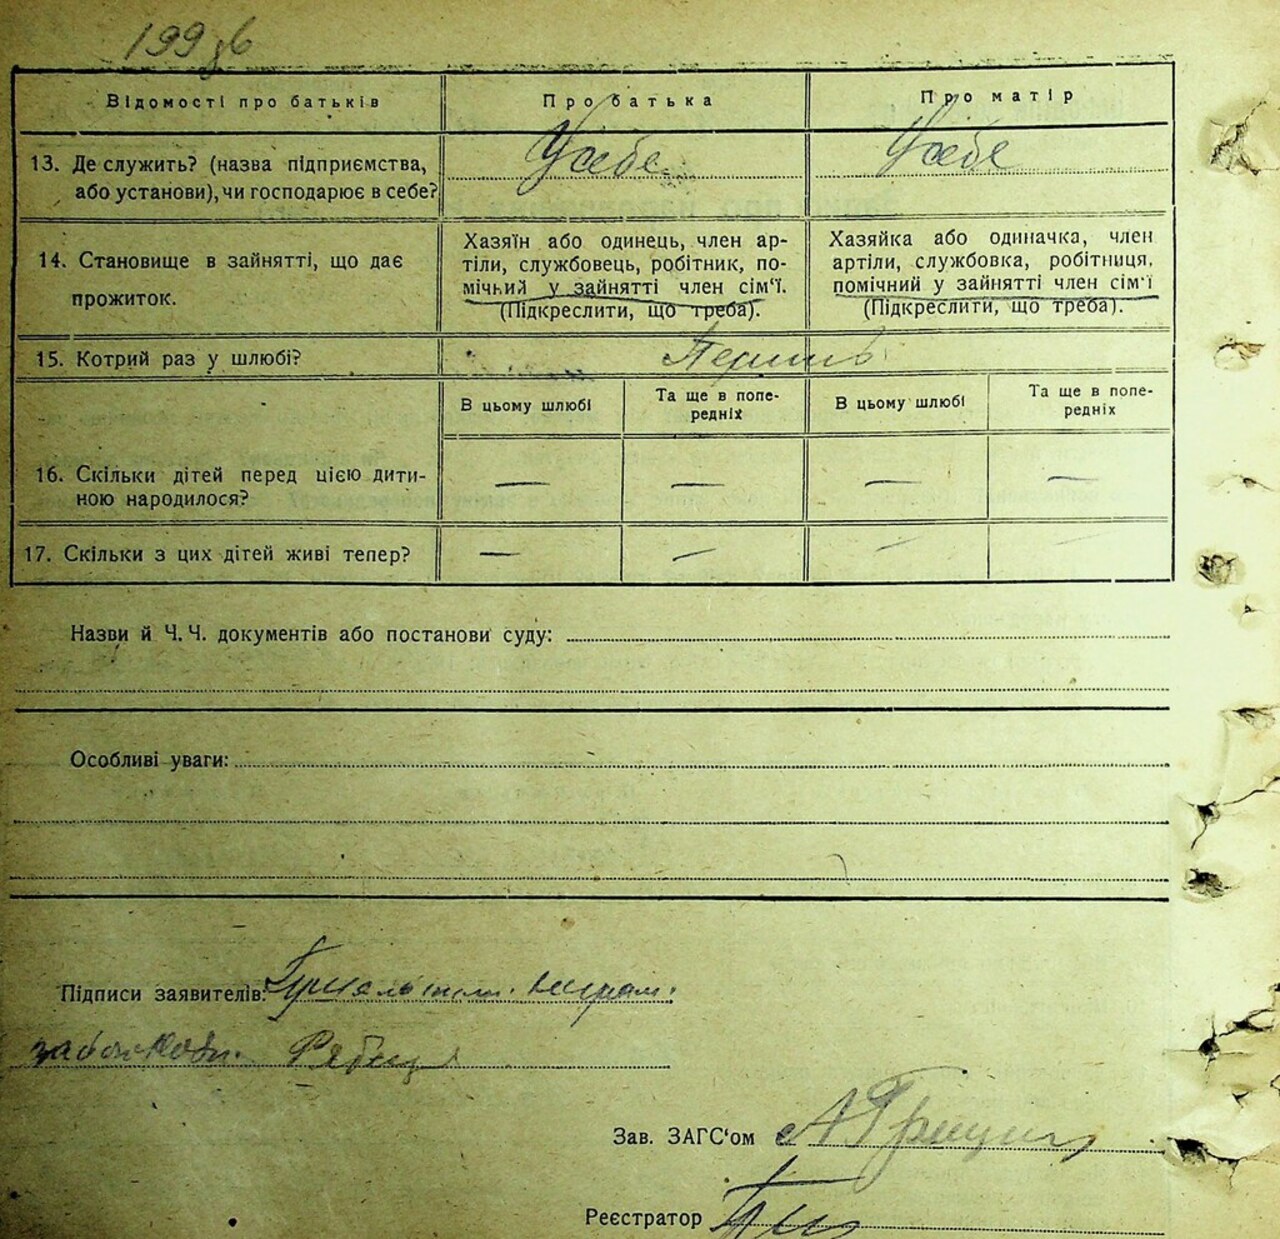 199 зв
Відомості про батьків Про батька Про матір
13. Де служить? (назва підприємства, У себе У себе
або установи), чи господарює в себе?
14. Становище в зайнятті, що дає
прожиток.
Хазяїн або одинець, член ар-
тіли, службовець, робітник, по-
мічний у зайнятті член сім'ї.
(Підкреслити, що треба).
Хазяйка або одиначка, член
артіли, службовка, робітниця,
помічний у зайнятті член сім'ї
(Підкреслити, що треба).
15. Котрий раз у шлюбі?
В цьому шлюбі Та ще в попе-
редніх
В цьому шлюбі Та ще в попе-
редніх
16. Скільки дітей перед цією дити-
ною народилося? — — — —
17. Скільки з цих дітей живі тепер? — — —
Назви й Ч. Ч. документів або постанови суду:
Особливі уваги:
Підписи заявителів:
Зав. ЗАГС'ом
Реєстратор